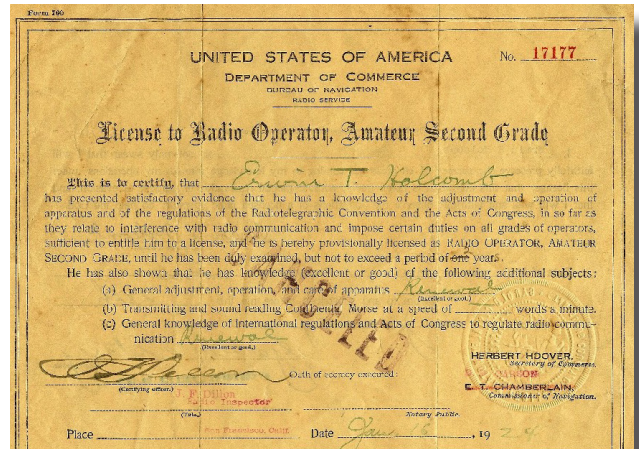 Form 760
UNITED STATES OF AMERICA
No. 17177
DEPARTMENT OF COMMERCE
BUREAU OF NAVIGATION
RADIO SERVICE
License to Radio Operator, Amateur Second Grade
This is to certify, that Erwin T. Holcomb
has presented satisfactory evidence that he has a knowledge of the adjustment and operation of
apparatus and of the regulations of the Radiotelegraphic Convention and the Acts of Congress, in so far as
they relate to interference with radio communication and impose certain duties on all grades of operators,
sufficient to entitle him to a license, and he is hereby provisionally licensed as RADIO OPERATOR, AMATEUR
SECOND GRADE, until he has been duly examined, but not to exceed a period of years.
He has also shown that he has knowledge (excellent or good) of the following additional subjects:
(a) General adjustment, operation, and care of apparatus Renewal
(Excellent or good.)
(b) Transmitting and sound reading Continental Morse at a speed of words a minute.
(c) General knowledge of international regulations and Acts of Congress to regulate radio commu-
nication Renewal
(Excellent or good.)
CANCELLED
HERBERT HOOVER,
Secretary of Commerce.
Oath of secrecy executed:
(Certifying officer.)
J. F. Dillon
Radio Inspector
(Title.)
Notary Public.
E. T. CHAMBERLAIN,
Commissioner of Navigation.
Place San Francisco, Calif. Date Jan 6, 1924